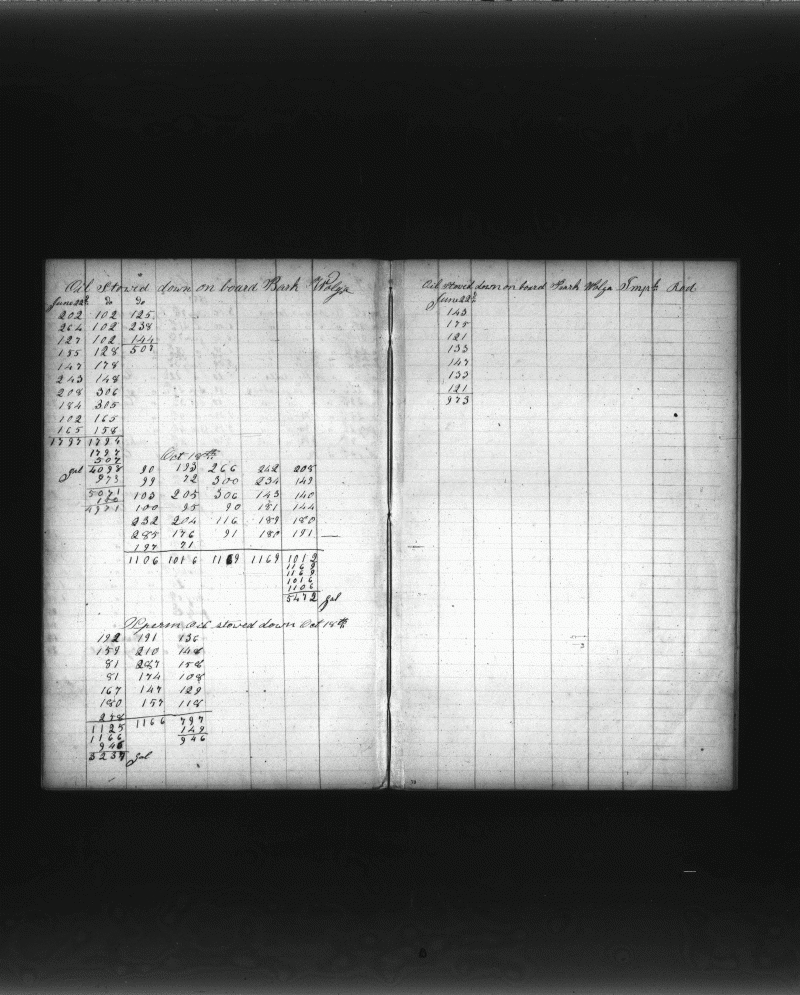 Oil Stowed down on board Bark Wolga
June 22d do do
202 102 125
264 102 238
127 102 144
155 128 507
147 178
243 148
208 306
184 305
102 165
165 158
1797 1794
1797
507
gal 4098
973
5071
100
4971
Oct 18th
90 193 266 242 205
99 72 300 234 149
103 205 306 143 140
100 95 90 181 144
232 204 116 189 180
285 176 91 180 191
197 71
1106 1016 1169 1169 1012
1169
1169
1016
1106
5472 gal
Sperm Oil stowed down Oct 18th
192 191 136
159 210 148
81 287 158
81 174 108
167 147 129
180 157 118
278
1125 1166 797
1166 149
946 946
3237 gal
Oil stowed down on board Bark Wolga Rod
June 22d
143
175
121
133
147
133
121
973